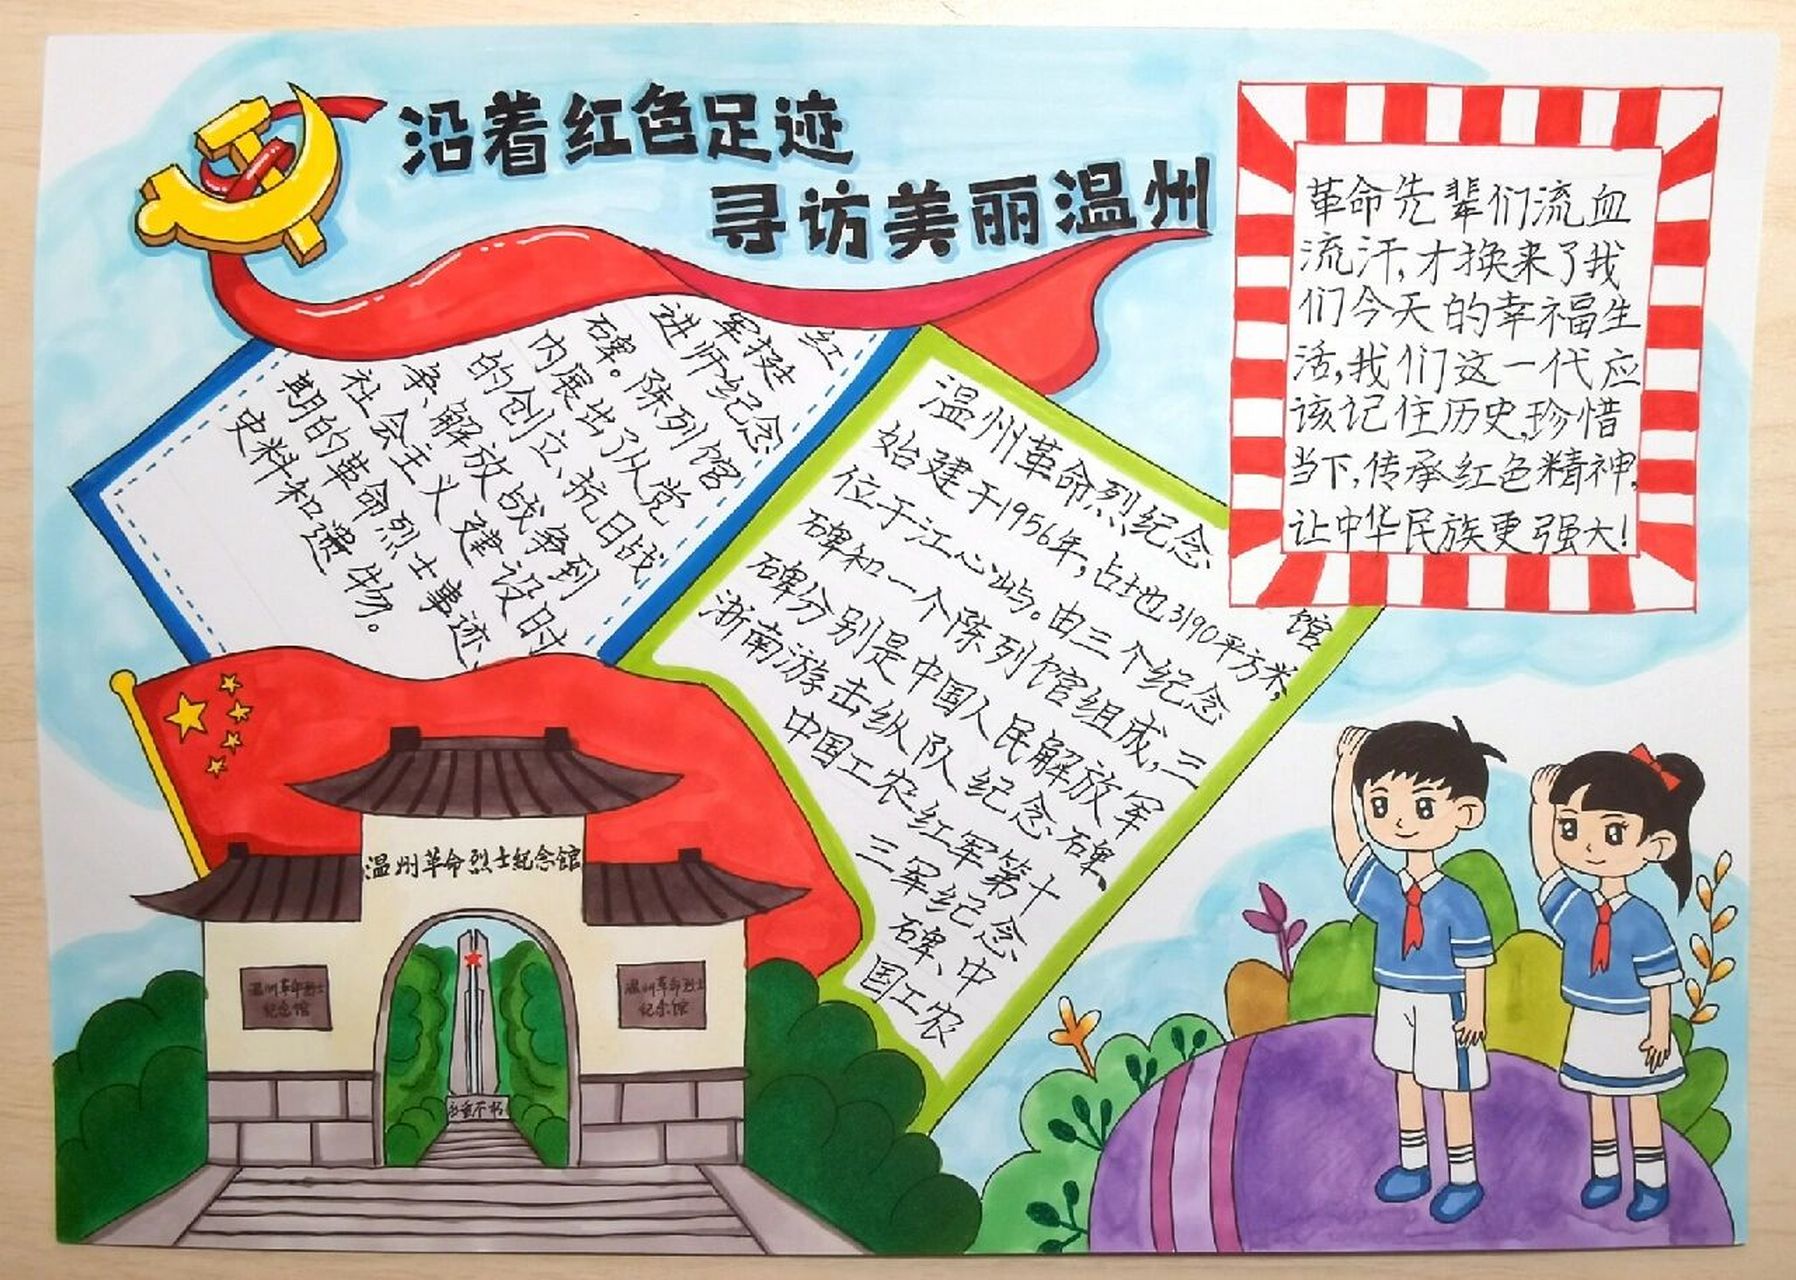 沿着红色足迹
寻访美丽温州
温州革命烈纪念馆
始建于1956年，占地3190平方米，
位于江心屿。由三个纪念
碑和一个陈列馆组成，三
碑分别是中国人民解放军
浙南游击纵队纪念碑、
中国工农红军第十
三军纪念
碑、中
国工农
红
军挺
进师纪念
碑。陈列馆
内展出了从党
的创立、抗日战
争、解放战争到
社会主义建设时
期的革命烈士事迹、
史料和遗物。
革命先辈们流血
流汗，才换来了我
们今天的幸福生
活，我们这一代应
该记住历史，珍惜
当下，传承红色精神，
让中华民族更强大！
温州革命烈士纪念馆
温州革命烈士
纪念馆
温州革命烈士
纪念馆